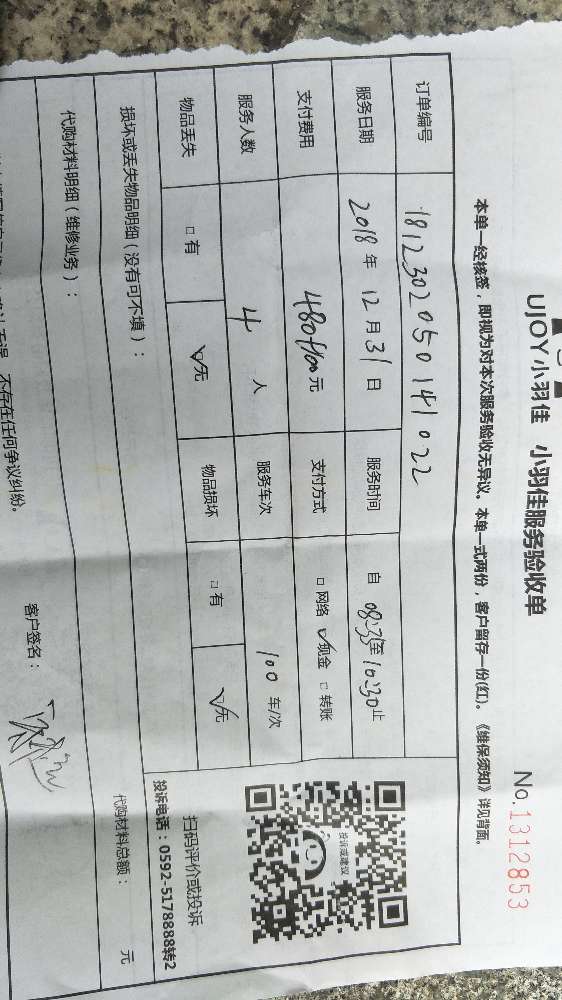 UJOY小羽佳 小羽佳服务验收单
No.1312853
本单一经核签，即视为对本次服务验收无异议。本单一式两份，客户留存一份(红)。《维保须知》详见背面。
订单编号 181230205014 1022
服务日期 2018年12月31日 服务时间 自08:35至10:30止
支付费用 元 支付方式 □网络 ☑现金 □转账
服务人数 4人 服务车次 100车/次
物品丢失 □有 ☑无 物品损坏 □有 ☑无
扫码评价或投诉
投诉或建议
投诉电话：0592-5178888转2
损坏或丢失物品明细（没有可不填）：
代购材料明细（维修业务）：
代购材料总额： 元
无误，不存在任何争议纠纷。
客户签名：